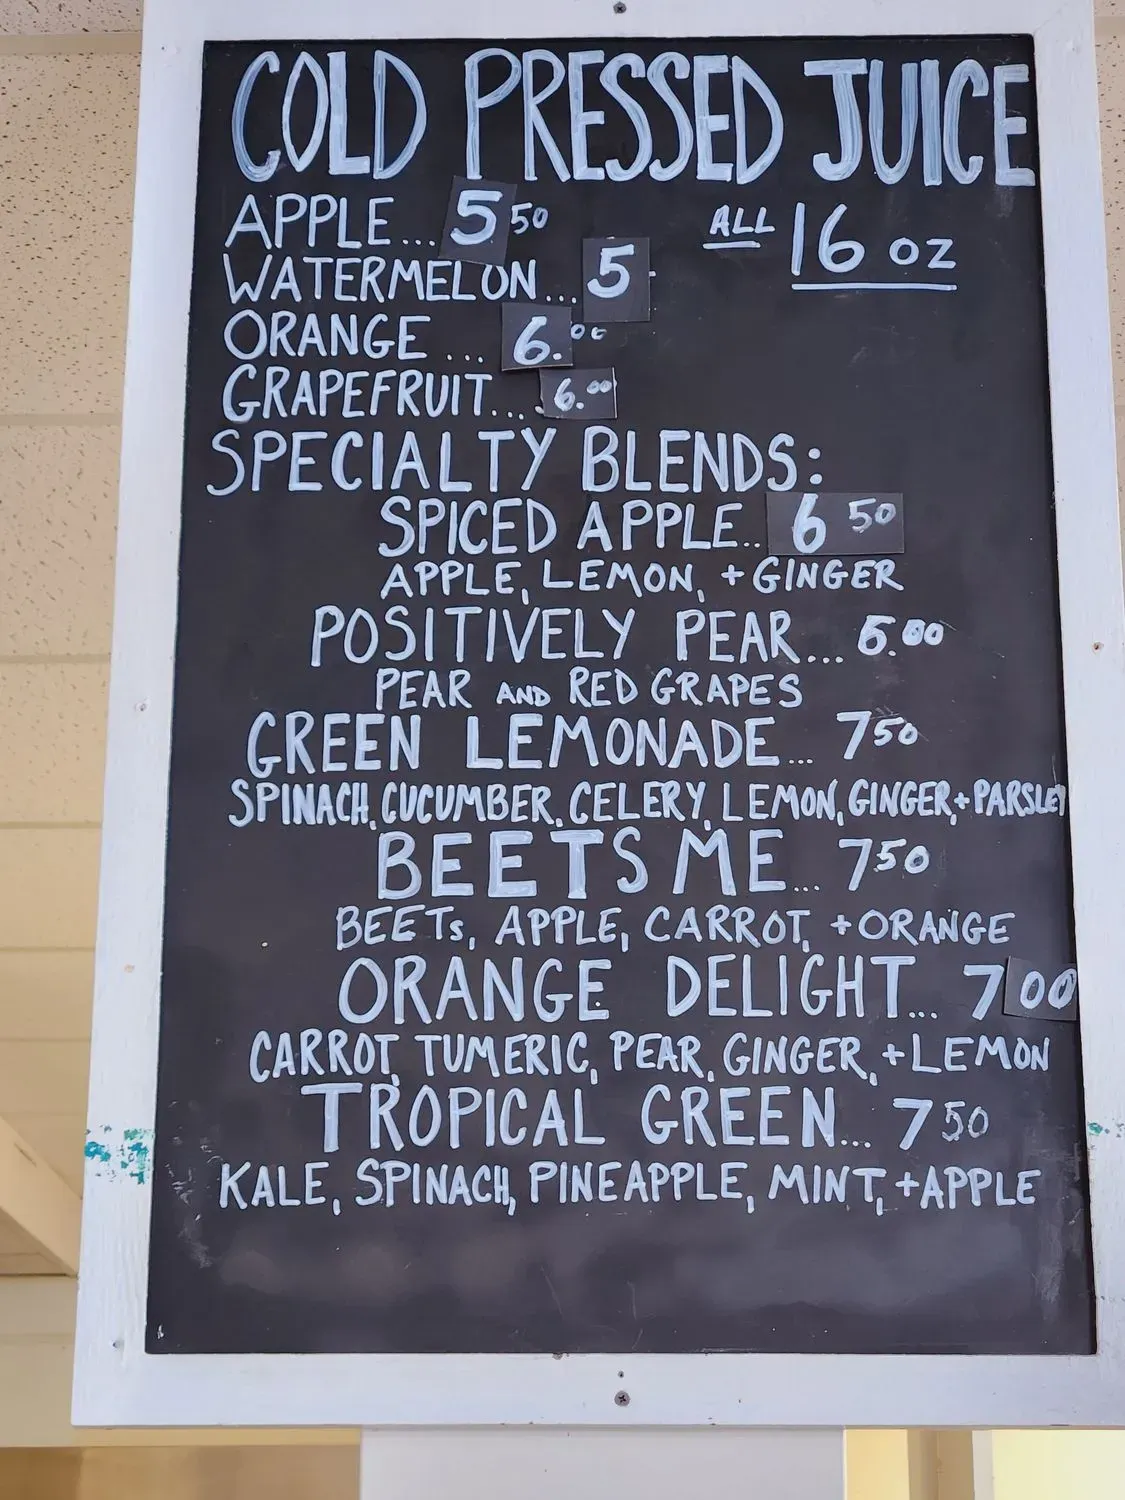 COLD PRESSED JUICE
APPLE... 5 50
ALL 16 OZ
WATERMELON... 5
ORANGE... 6.00
GRAPEFRUIT... 6.00
SPECIALTY BLENDS:
SPICED APPLE.. 6 50
APPLE, LEMON, + GINGER
POSITIVELY PEAR... 6.00
PEAR AND RED GRAPES
GREEN LEMONADE... 7 50
SPINACH, CUCUMBER, CELERY, LEMON, GINGER, + PARSLEY
BEETS ME... 7 50
BEETS, APPLE, CARROT, + ORANGE
ORANGE DELIGHT... 7 00
CARROT, TUMERIC, PEAR, GINGER, + LEMON
TROPICAL GREEN... 7 50
KALE, SPINACH, PINEAPPLE, MINT, + APPLE